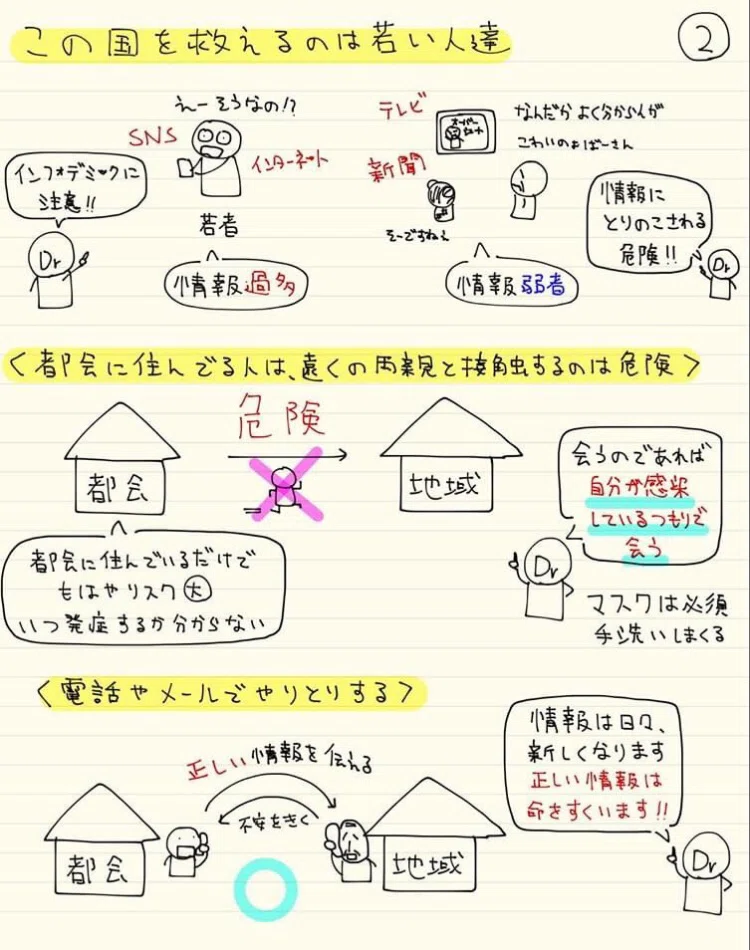 この国を救えるのは若い人達
②
えーそうなの!?
SNS
インターネット
若者
情報過多
インフォデミックに
注意!!
Dr
テレビ
オーバー
シュート
なんだかよく分からんが
こわいのぉばーさん
新聞
そーですねぇ
情報弱者
情報に
とりのこされる
危険!!
Dr
〈都会に住んでる人は、遠くの両親と接触するのは危険〉
危険
都会
地域
都会に住んでいるだけで
もはやリスク大
いつ発症するか分からない
会うのであれば
自分が感染
しているつもりで
会う
Dr
マスクは必須
手洗いしまくる
〈電話やメールでやりとりする〉
正しい情報を伝える
不安をきく
都会
地域
情報は日々、
新しくなります
正しい情報は
命をすくいます!!
Dr